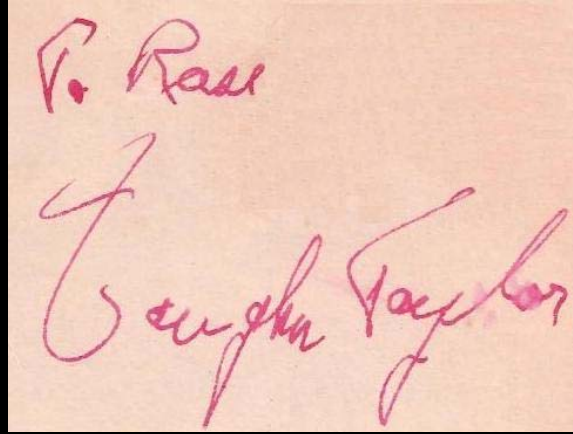 To Rose
Vaughn Taylor